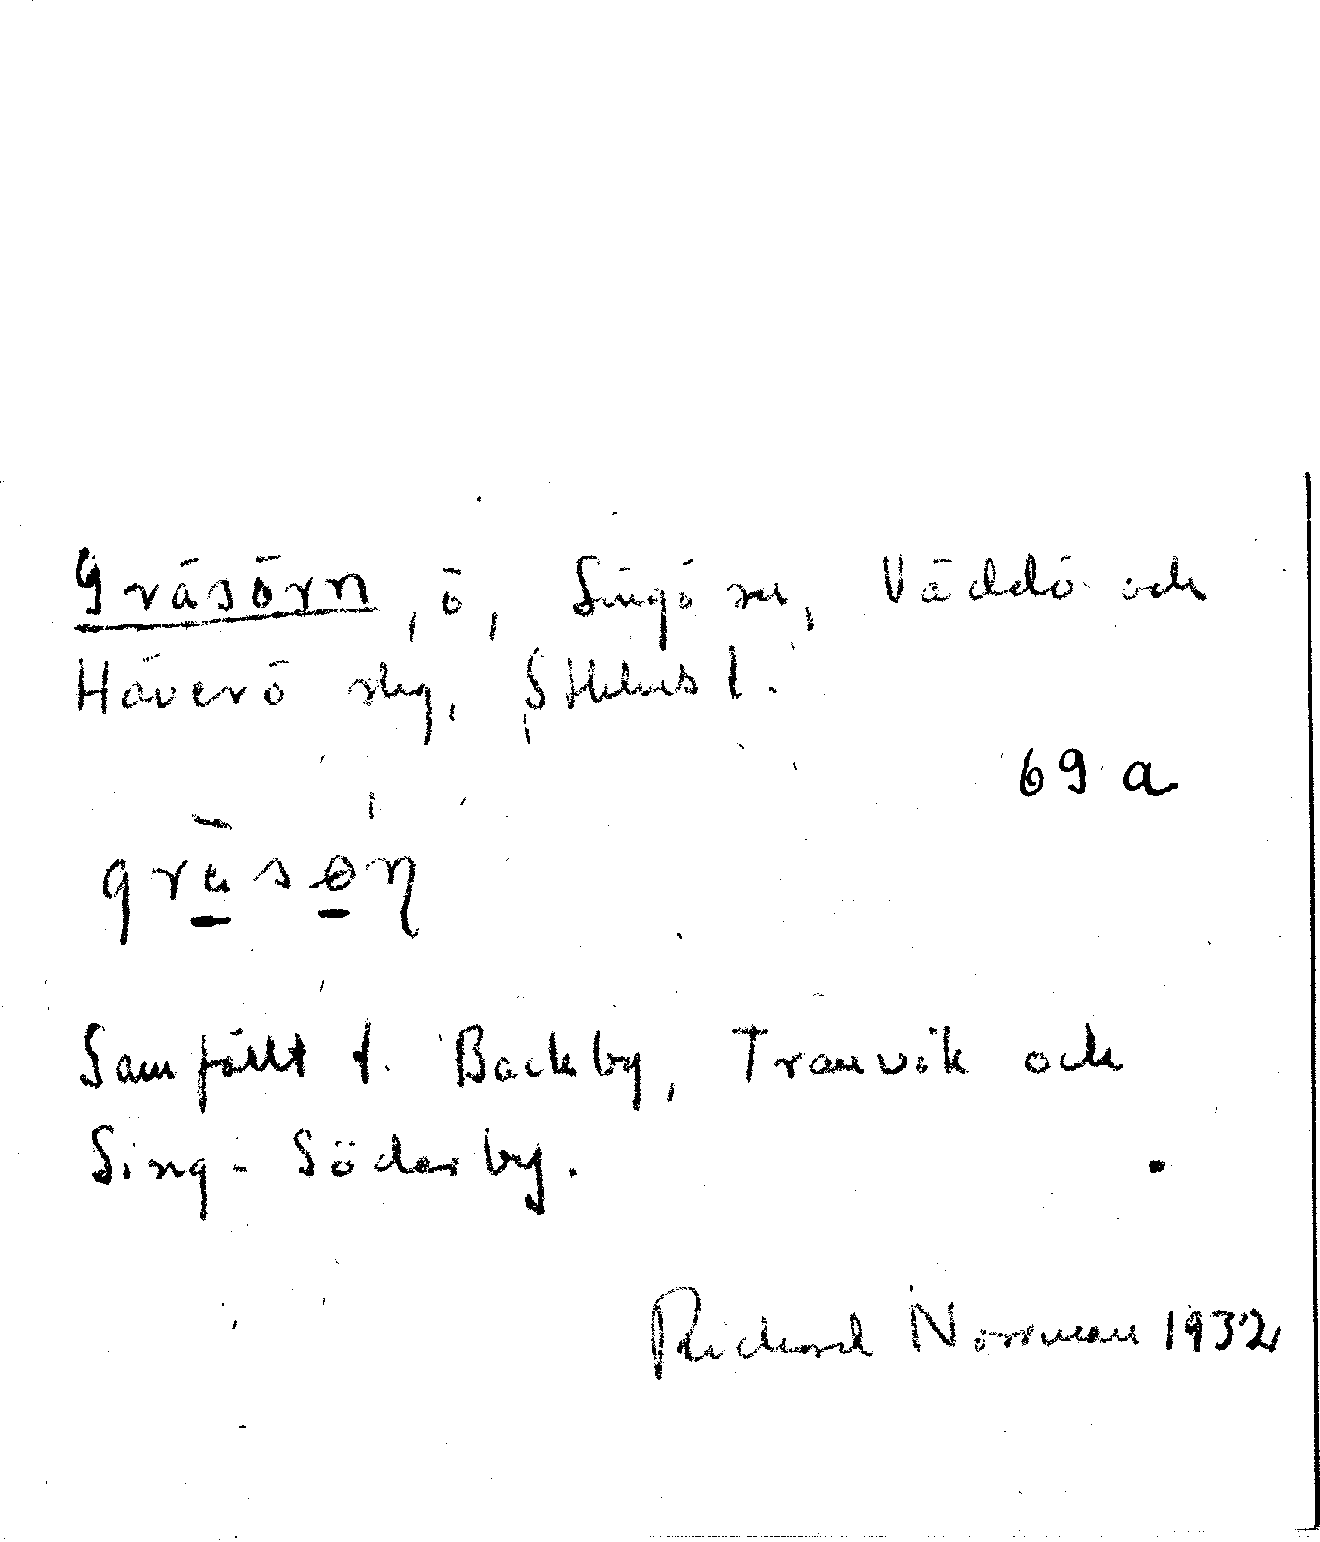 Gräsörn, ö, Singö sn, Väddö och
Häverö slg, Sthlms l.
69 a
gräsøn
Samfällt f. Backby, Tranvik och
Sing-Söderby.
Richard Norrman 1932